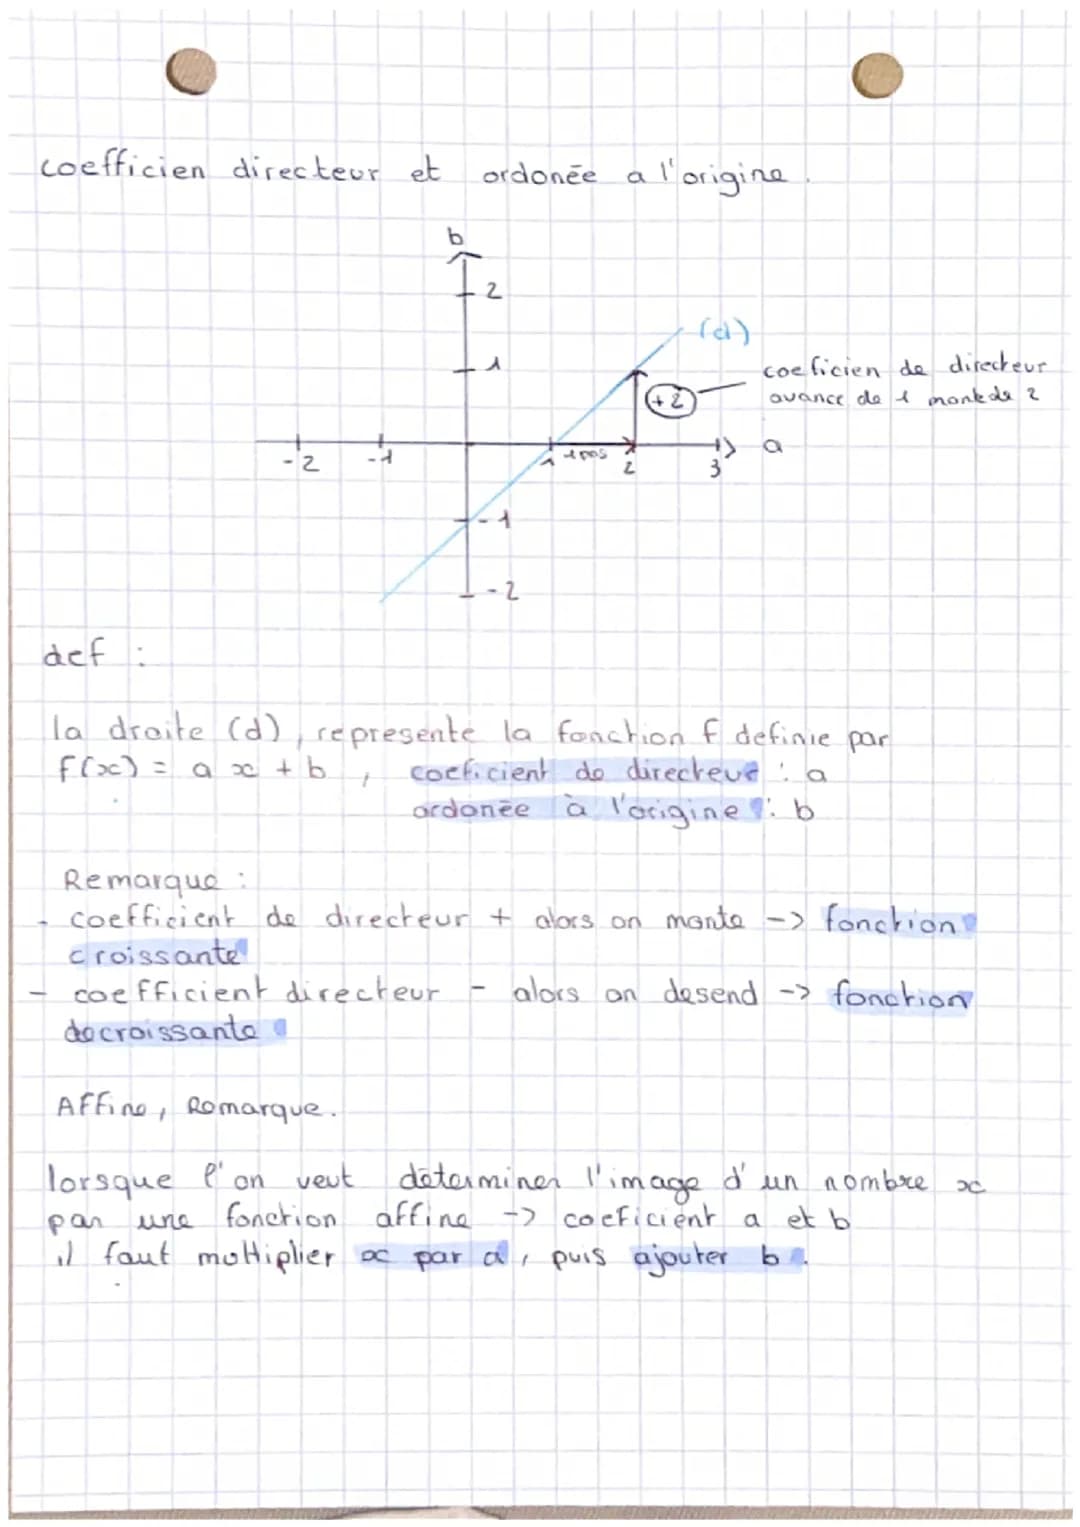 coefficien directeur et ordonée a l'origine.
b
2
(d)
1
coeficien de directeur
+2
avance de 1 monte de 2
a
-2
-1
1
1 pas
2
3
-1
-2
def :
la droite (d), represente la fonction f definie par
f(x) = a x + b , coeficient de directeur : a
ordonée à l'origine : b
Remarque :
- coefficient de directeur + alors on monte -> fonction
croissante
- coefficient directeur - alors on desend -> fonction
decroissante
Affine, Remarque.
lorsque l'on veut déterminer l'image d'un nombre x
par une fonction affine -> coeficient a et b
il faut moltiplier x par a, puis ajouter b.